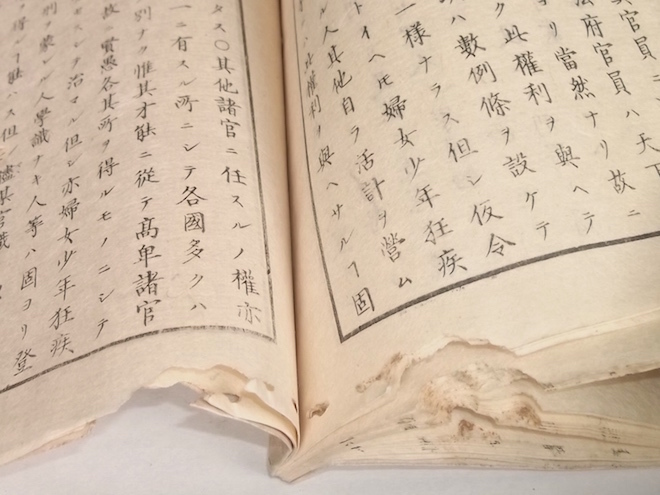 其官員ニ
法府官員ハ天下
ヨリ當然ナリ故ニ
ク此權利ヲ與ヘテ
ハ數例條ヲ設ケテ
一樣ナラス但シ仮令
トイヘ𪜈婦女少年狂疾
ル人其他自ラ活計ヲ營ム
ハ此權利ヲ與ヘサルヿ固
タス〇其他諸官ニ任スルノ權亦
一ニ有スル所ニシテ各國多クハ
別ナク惟其才能ニ從テ高卑諸官
故ニ賢愚各其所ヲ得ルモノニシテ
モスシヲ治マル但シ亦婦女少年狂疾
別ヲ蒙ル人學識ナキ人等ハ固ヨリ登
得ルヿ能ハス但シ